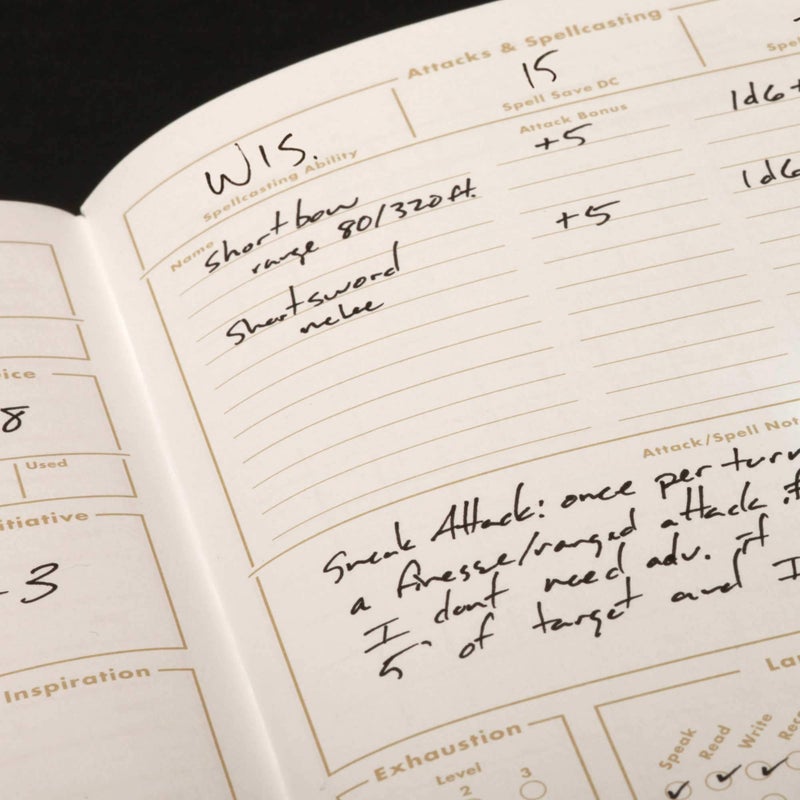 Attacks & Spellcasting
WIS.
Spellcasting Ability
15
Spell Save DC
Name
Attack Bonus
shortbow
+5
1d6+
range 80/320ft.
shortsword
+5
1d6
melee
Attack/Spell Not
Sneak Attack: once per turn
a finesse/ranged attack if
I dont need adv. if
5' of target and I
8
Used
3
Inspiration
Exhaustion
Level
2
3
Speak
Read
Write